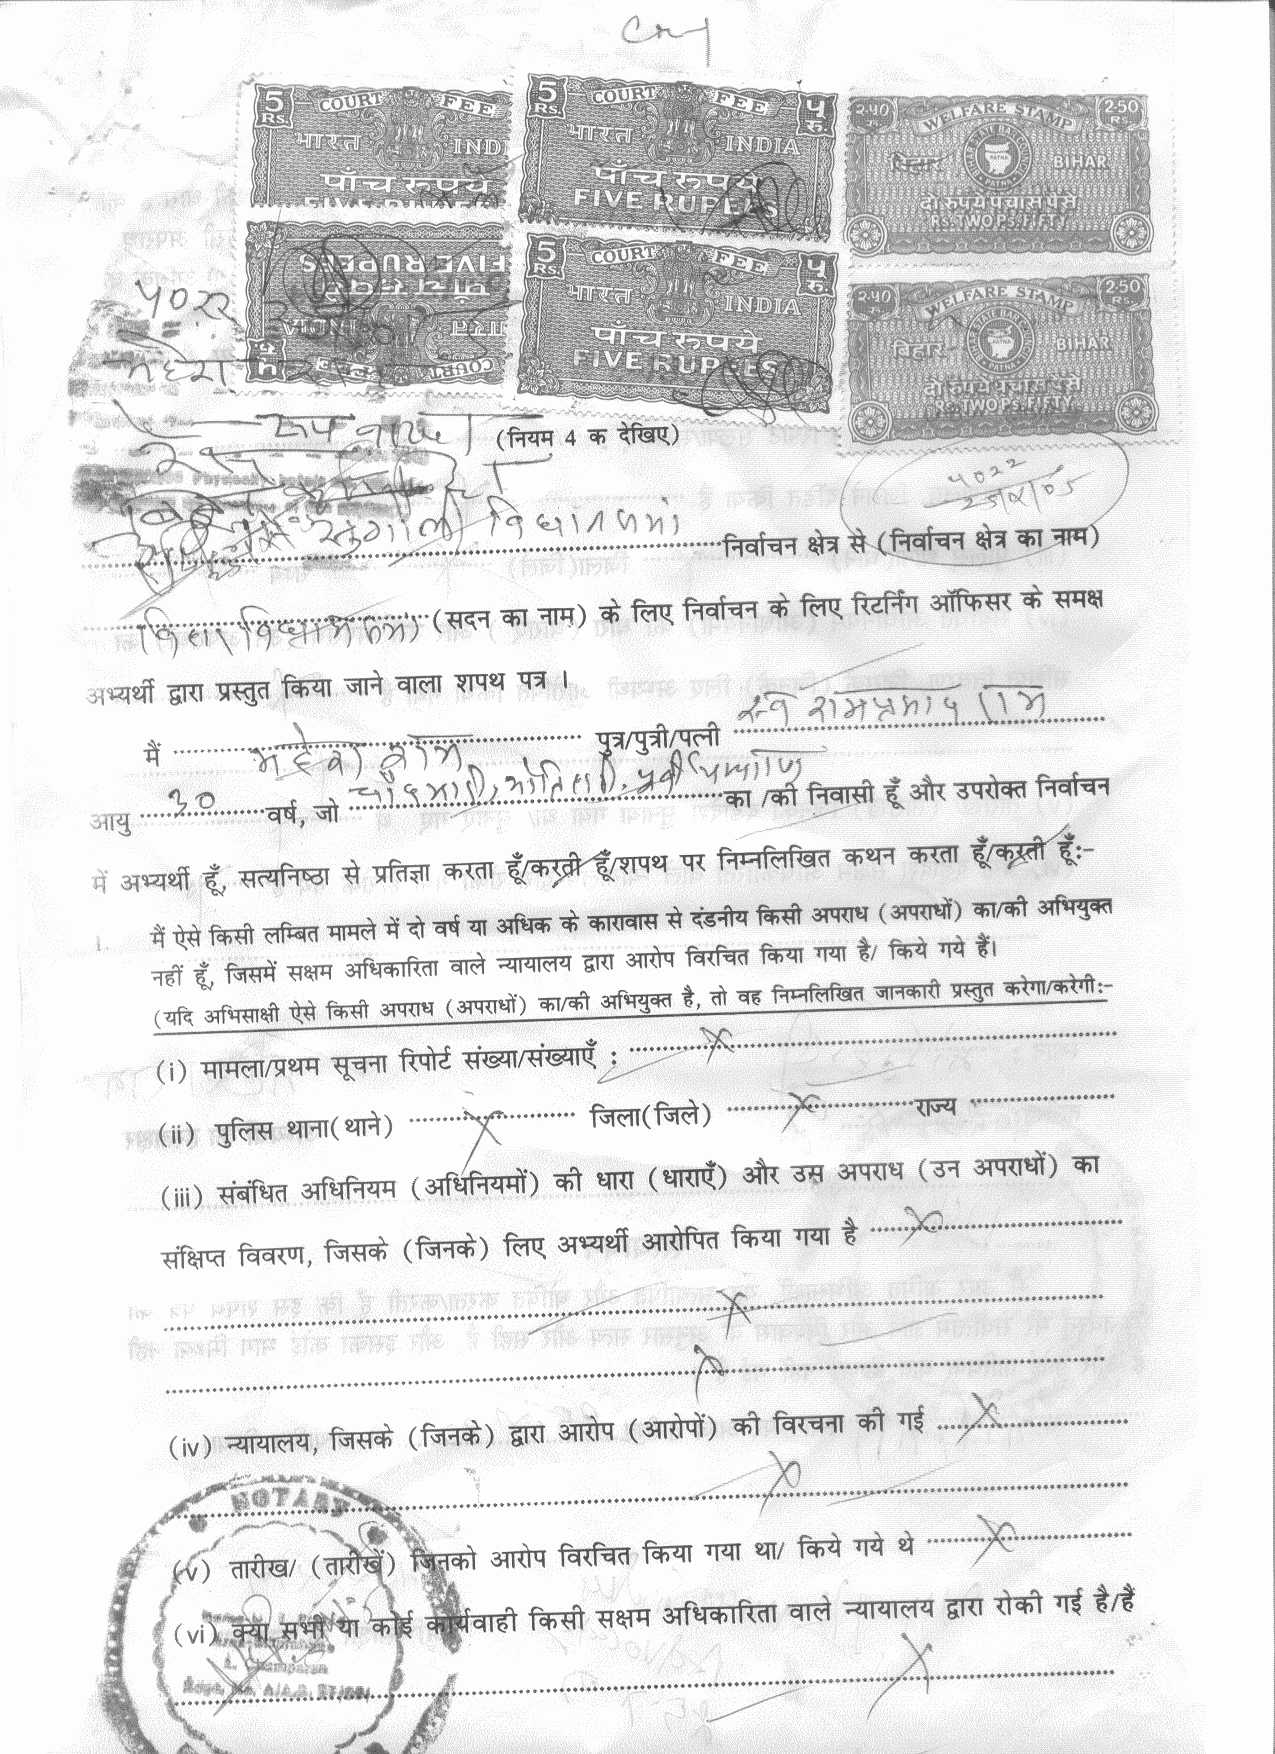 5 Rs. COURT FEE
भारत IND
पाँच रुपये
5 Rs. COURT FEE ५ रु.
भारत INDIA
पाँच रुपये
FIVE RUPEES
२.५० WELFARE STAMP 2.50 Rs.
बिहार BIHAR
दो रुपये पचास पैसे
Rs. TWO PS. FIFTY
FIVE RUPEES
पाँच रुपये
5 Rs. COURT FEE ५ रु.
भारत INDIA
पाँच रुपये
FIVE RUPEES
२.५० WELFARE STAMP 2.50 Rs.
बिहार BIHAR
दो रुपये पचास पैसे
Rs. TWO PS. FIFTY
५०२२
(नियम 4 क देखिए)
५०२२
सुगौली विधानसभा निर्वाचन क्षेत्र से (निर्वाचन क्षेत्र का नाम)
विधानसभा (सदन का नाम) के लिए निर्वाचन के लिए रिटर्निंग ऑफिसर के समक्ष
अभ्यर्थी द्वारा प्रस्तुत किया जाने वाला शपथ पत्र ।
मैं महेश राम पुत्र/पुत्री/पत्नी स्व रामप्रसाद राम
आयु ३० वर्ष, जो चांदमारी, मोतिहारी, पूर्वी चम्पारण का /की निवासी हूँ और उपरोक्त निर्वाचन
में अभ्यर्थी हूँ, सत्यनिष्ठा से प्रतिज्ञा करता हूँ/करती हूँ/शपथ पर निम्नलिखित कथन करता हूँ/करती हूँ:–
1. मैं ऐसे किसी लम्बित मामले में दो वर्ष या अधिक के कारावास से दंडनीय किसी अपराध (अपराधों) का/की अभियुक्त
नहीं हूँ, जिसमें सक्षम अधिकारिता वाले न्यायालय द्वारा आरोप विरचित किया गया है/ किये गये हैं।
(यदि अभिसाक्षी ऐसे किसी अपराध (अपराधों) का/की अभियुक्त है, तो वह निम्नलिखित जानकारी प्रस्तुत करेगा/करेगी:–
(i) मामला/प्रथम सूचना रिपोर्ट संख्या/संख्याएँ : X
(ii) पुलिस थाना(थाने) X जिला(जिले) X राज्य
(iii) संबंधित अधिनियम (अधिनियमों) की धारा (धाराएँ) और उस अपराध (उन अपराधों) का
संक्षिप्त विवरण, जिसके (जिनके) लिए अभ्यर्थी आरोपित किया गया है X
X
X
(iv) न्यायालय, जिसके (जिनके) द्वारा आरोप (आरोपों) की विरचना की गई X
X
NOTARY
(v) तारीख/ (तारीखें) जिनको आरोप विरचित किया गया था/ किये गये थे X
(vi) क्या सभी या कोई कार्यवाही किसी सक्षम अधिकारिता वाले न्यायालय द्वारा रोकी गई है/हैं
X